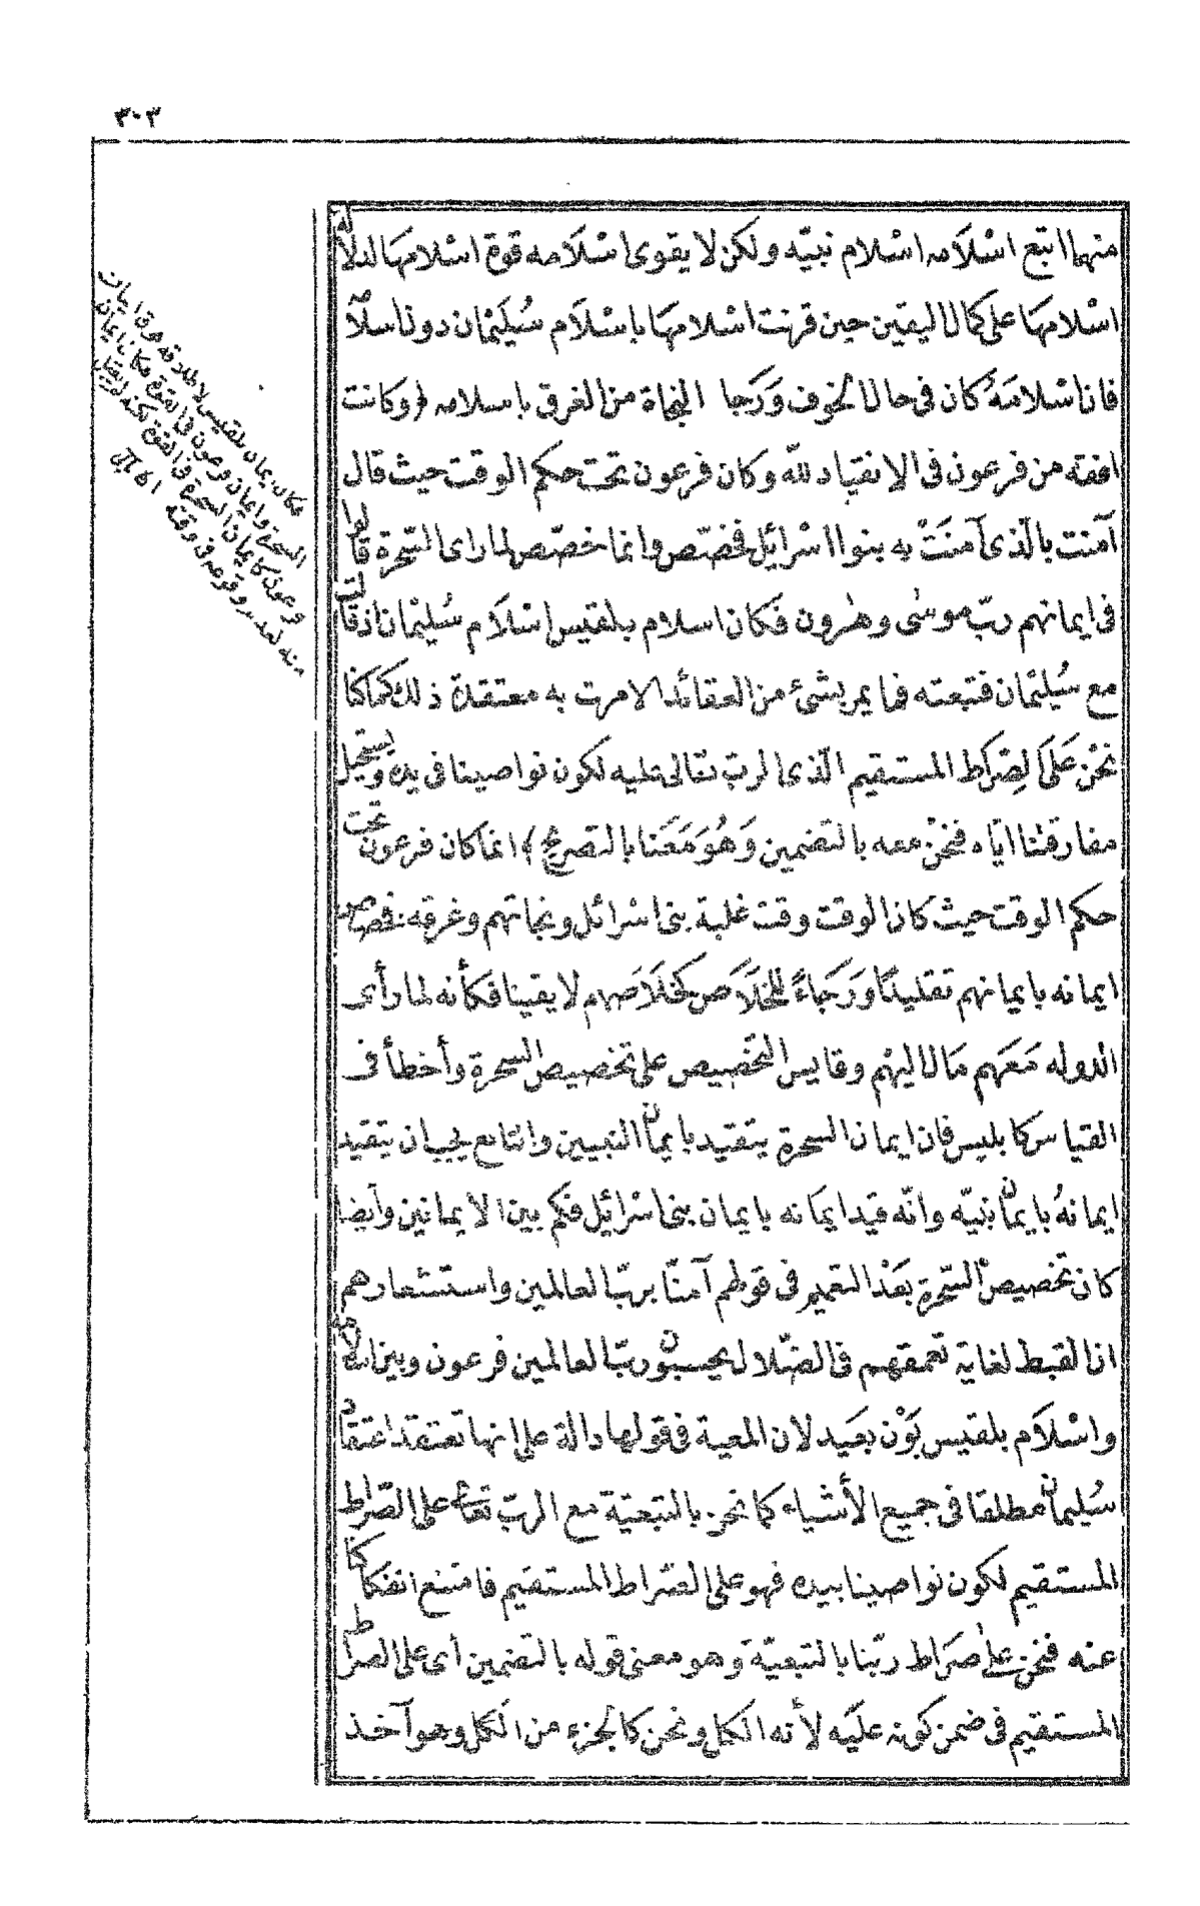 ٣٠٣
منهما اتبع اسْلَامه اسْلام نبيّه ولكن لا يقوى اسْلَامه قوة اسْلامهَا لدلالة
اسْلامهَا على كمال اليقين حين قرنت اسْلامهَا باسْلَام سُلَيْمان دون اسلامه
فان اسْلامَهُ كان فى حال الخوف وَرَجا النجاة من الغرق باسلامه (وكانت
افقه من فرعون فى الانقياد للّه وكان فرعون تحت حكم الوقت حيث قال
آمنت بالّذى آمنَتْ به بنوا اسْرائيل فخصّص وانما خصّص لما راى السّحرة قالوا
فى ايمانهم ربّ موسٰى وهٰرون فكان اسلام بلقيس اسْلَام سُلَيْمان اذ قالت
مع سُلَيْمان فتبعته فما يمر بشىء من العقائد الا مرت به معتقدة ذلك كما كنا
نحْن عَلَى الصِّرَاط المستقيم الّذى الربّ تعالى عليه لكون نواصينا فى يده ويستحيل
مفارقتنا ايّاه فنحْن معه بالتضمين وَهُوَ مَعَنا بالتصريح) انما كان فرعون تحت
حكم الوقت حيث كان الوقت وقت غلبة بنى اسْرائيل ونجاتهم وغرقه فخصص
ايمانه بايمانهم تقليدًا وَرَجَاءً للخلَاص كخلَاصهم لا يقينا فكأنه لما رأى
الدوله مَعَهم مَال اليهْم وقايس التخصيص على تخصيص السحرة وأخطأ فى
القياس كابليس فان ايمان السحرة يتقيد بايمان النبيين والتابع يجب ان يتقيد
ايمانهُ بايمان نبيّه وانّه قيد ايمَانه بايمان بنى اسْرائيل فكم بين الايمانين وأيضا
كان تخصيص السّحرة بعَد التعميم فى قولهم آمنّا بربّ العالمين واستشعارهم
ان القبط لغاية تعمقهم فى الضّلال يحسبون ربّ العالمين فرعون وبين اسلامه
واسْلَام بلقيس بَوْن بعَيد لان المعية فى قولها دالة على انها تعتقد اعتقاد
سُليمان مطلقا فى جميع الأشياء كما نحن بالتبعيّة مع الربّ تعالى على الصّراط
المستقيم لكون نواصينا بيده فهو على الصّراط المستقيم فامتنع انفكاكنا
عنه فنحن على صرَاط ربّنا بالتبعيّة وهو معنى قوله بالتضمين أى على الصراط
المستقيم فى ضمن كونه عليَه لأنه الكل ونحن كالجزء من الكل وهو آخذ
فكان ايمان بلقيس لاطلاقه
السحرة وايمان فرعون فى القوة
فرعون كايمان السحرة فى القوة لكنه لم يقبل
منه لعدم وقوعه فى وقته